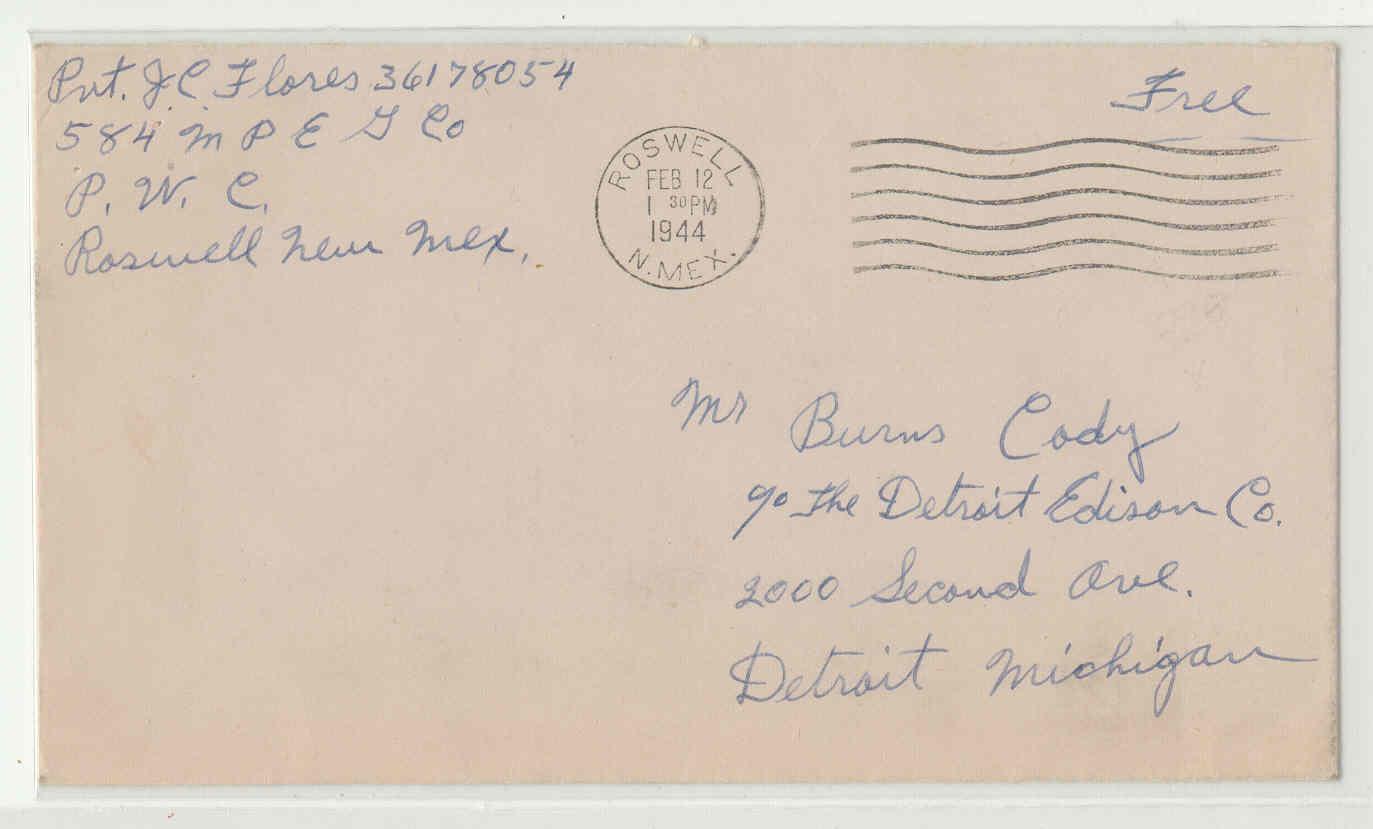 Pvt. J C Flores 36178054
584 M P E G Co
P. W. C.
Roswell New Mex.
Free
ROSWELL
FEB 12
1 30 PM
1944
N. MEX.
Mr Burns Cody
c/o The Detroit Edison Co.
2000 Second Ave.
Detroit Michigan